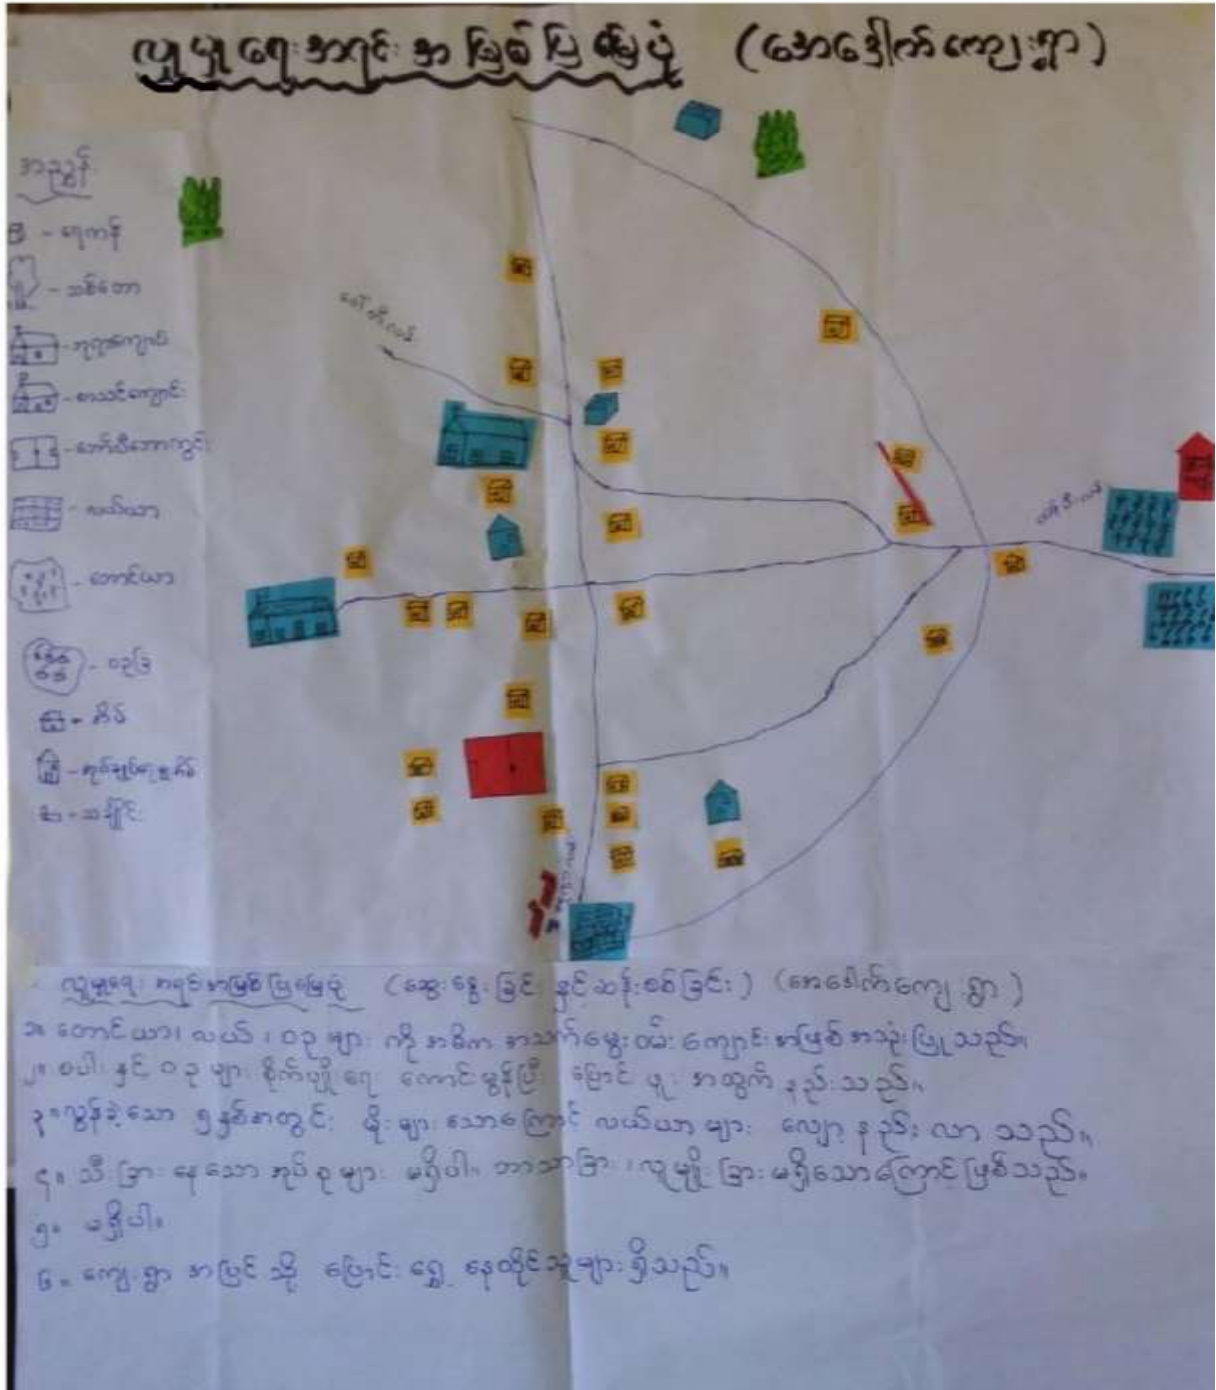 လူမှုရေးအရင်းအမြစ်ပြမြေပုံ (အေဒေါက်ကျေးရွာ)
အညွှန်း
- ရေကန်
- သစ်တော
- ဘုရားကျောင်း
- စာသင်ကျောင်း
- ဘော်လီဘောကွင်း
- လယ်ယာ
- တောင်ယာ
- ဝဥခြံ
- အိမ်
- အုပ်ချုပ်ရေးမှူးအိမ်
- သင်္ချိုင်း
လူမှုရေးအရင်းအမြစ်ပြမြေပုံ (ဆွေးနွေးခြင်းနှင့်ဆန်းစစ်ခြင်း) (အေဒေါက်ကျေးရွာ)
၁။ တောင်ယာ၊ လယ်၊ ဝဥများကို အဓိက အသက်မွေးဝမ်းကျောင်းအဖြစ်အသုံးပြုသည်။
၂။ စပါးနှင့် ဝဥများ စိုက်ပျိုးရေး ကောင်းမွန်ပြီး ပြောင်းဖူး အထွက်နည်းသည်။
၃။ လွန်ခဲ့သော ၅နှစ်အတွင်း မိုးများသောကြောင့် လယ်ယာများ လျော့နည်းလာသည်။
၄။ သီးခြားနေသော အုပ်စုများ မရှိပါ။ ဘာသာခြား၊ လူမျိုးခြားမရှိသောကြောင့်ဖြစ်သည်။
၅။ မရှိပါ။
၆။ ကျေးရွာ အပြင်သို့ ပြောင်းရွှေ့ နေထိုင်သူများရှိသည်။